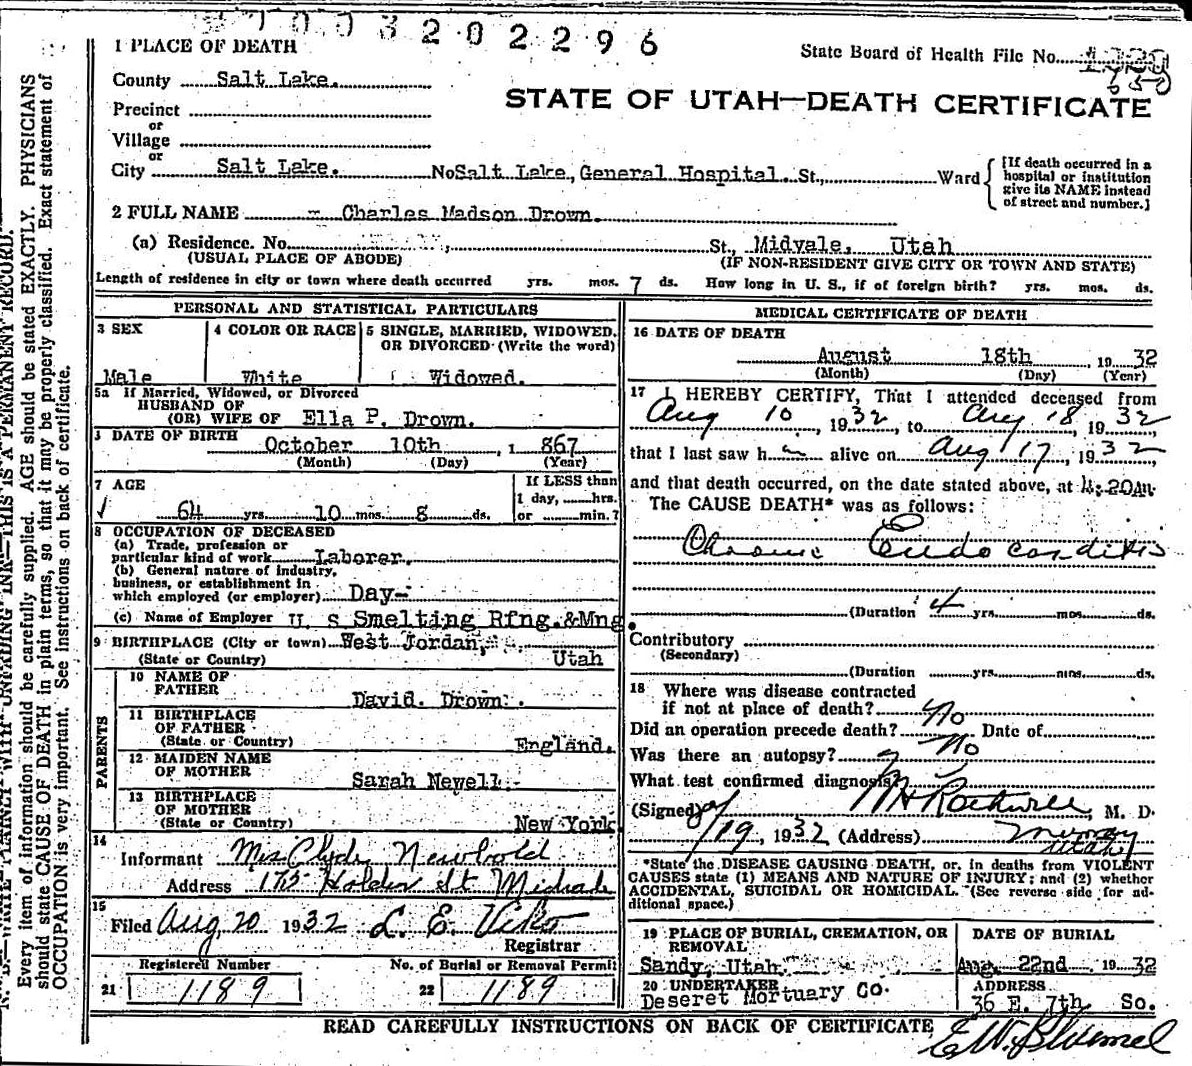 7003202296
1 PLACE OF DEATH
State Board of Health File No.
650
County Salt Lake.
STATE OF UTAH—DEATH CERTIFICATE
Precinct
or
Village
or
City Salt Lake. No Salt Lake, General Hospital. St., Ward
[If death occurred in a hospital or institution give its NAME instead of street and number.]
2 FULL NAME - Charles Madson Drown.
(a) Residence. No. St., Midvale, Utah
(USUAL PLACE OF ABODE) (IF NON-RESIDENT GIVE CITY OR TOWN AND STATE)
Length of residence in city or town where death occurred yrs. mos. 7 ds. How long in U. S., if of foreign birth? yrs. mos. ds.
PERSONAL AND STATISTICAL PARTICULARS
3 SEX 4 COLOR OR RACE 5 SINGLE, MARRIED, WIDOWED,
OR DIVORCED (Write the word)
Male White Widowed.
5a If Married, Widowed, or Divorced
HUSBAND OF
(OR) WIFE OF Ella P. Drown.
DATE OF BIRTH October 10th, 1 867
(Month) (Day) (Year)
7 AGE If LESS than
1 day, hrs.
64 yrs. 10 mos 8 ds. or min.?
8 OCCUPATION OF DECEASED
(a) Trade, profession or
particular kind of work Laborer.
(b) General nature of industry,
business, or establishment in
which employed (or employer) Day-
(c) Name of Employer U. S Smelting Rfng.&Mng.
9 BIRTHPLACE (City or town) West Jordan,
(State or Country) Utah
PARENTS
10 NAME OF
FATHER David. Drown.
11 BIRTHPLACE
OF FATHER
(State or Country) England.
12 MAIDEN NAME
OF MOTHER Sarah Newell-
13 BIRTHPLACE
OF MOTHER
(State or Country) New York
14
Informant Mrs. Clyde Newbold
Address 175 Holden St Midvale
15
Filed Aug 20 1932 L. E. Viko
Registrar
Registered Number No. of Burial or Removal Permit
21 1189 22 1189
MEDICAL CERTIFICATE OF DEATH
16 DATE OF DEATH
August 18th, 19 32
(Month) (Day) (Year)
17 I HEREBY CERTIFY, That I attended deceased from
Aug 10, 1932, to Aug 18, 1932
that I last saw h alive on Aug 17, 1932
and that death occurred, on the date stated above, at 4:20AM
The CAUSE DEATH* was as follows:
Chronic Endocarditis
(Duration 4 yrs. mos. ds.
Contributory
(Secondary)
(Duration yrs. mos. ds.
18 Where was disease contracted
if not at place of death?
Did an operation precede death? No Date of
Was there an autopsy? No
What test confirmed diagnosis?
(Signed) Rothwell, M. D.
8/19, 1932 (Address) Murray
Utah
*State the DISEASE CAUSING DEATH, or, in deaths from VIOLENT
CAUSES state (1) MEANS AND NATURE OF INJURY; and (2) whether
ACCIDENTAL, SUICIDAL OR HOMICIDAL. (See reverse side for ad-
ditional space.)
19 PLACE OF BURIAL, CREMATION, OR
REMOVAL DATE OF BURIAL
Sandy, Utah. Aug. 22nd, 19 32
20 UNDERTAKER ADDRESS
Deseret Mortuary Co. 36 E. 7th So.
READ CAREFULLY INSTRUCTIONS ON BACK OF CERTIFICATE
WRITE PLAINLY WITH UNFADING INK—THIS IS A PERMANENT RECORD.
Every item of information should be carefully supplied. AGE should be stated EXACTLY. PHYSICIANS
should state CAUSE OF DEATH in plain terms, so that it may be properly classified. Exact statement of
OCCUPATION is very important. See instructions on back of certificate.